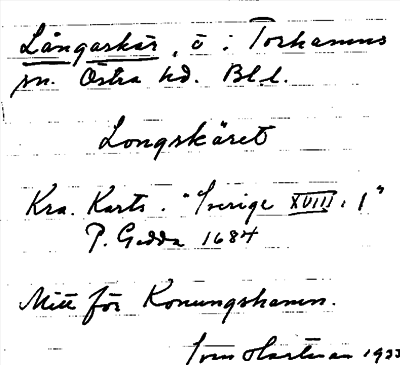 Långaskär, ö i Torhamns
sn. Östra hd. Bl.l.
Longskäret
Kra. Kartv. "Sverige XVIII. 1"
P. Gedda 1684
Mitt för Konungshamn.
Hartman 1933